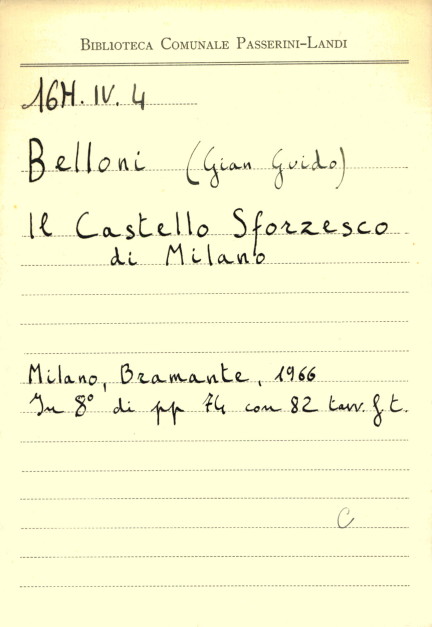 BIBLIOTECA COMUNALE PASSERINI-LANDI
16H. IV. 4
Belloni (Gian Guido)
Il Castello Sforzesco
di Milano
Milano, Bramante, 1966
In 8° di pp 74 con 82 tavv. f t.
C